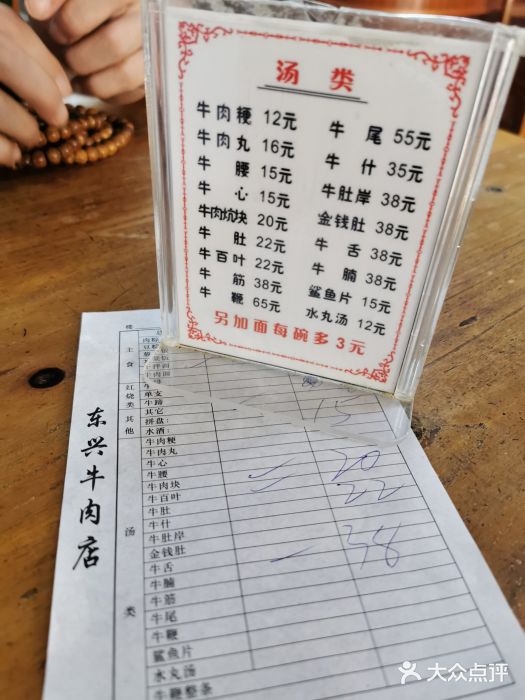 汤类
牛肉粳 12元
牛肉丸 16元
牛腰 15元
牛心 15元
牛肉坑块 20元
牛肚 22元
牛百叶 22元
牛筋 38元
牛鞭 65元
牛尾 55元
牛什 35元
牛肚岸 38元
金钱肚 38元
牛舌 38元
牛腩 38元
鲨鱼片 15元
水丸汤 12元
另加面每碗多3元
东兴牛肉店
主食
红烧类
单支
牛蹄
其他
其它
拼盘：
水酒：
15
汤类
牛肉粳
牛肉丸
牛心
牛腰 20
牛肉块 22
牛百叶
牛肚
牛什
牛肚岸 38
金钱肚
牛舌
牛腩
牛筋
牛尾
牛鞭
鲨鱼片
水丸汤
牛鞭整条
大众点评